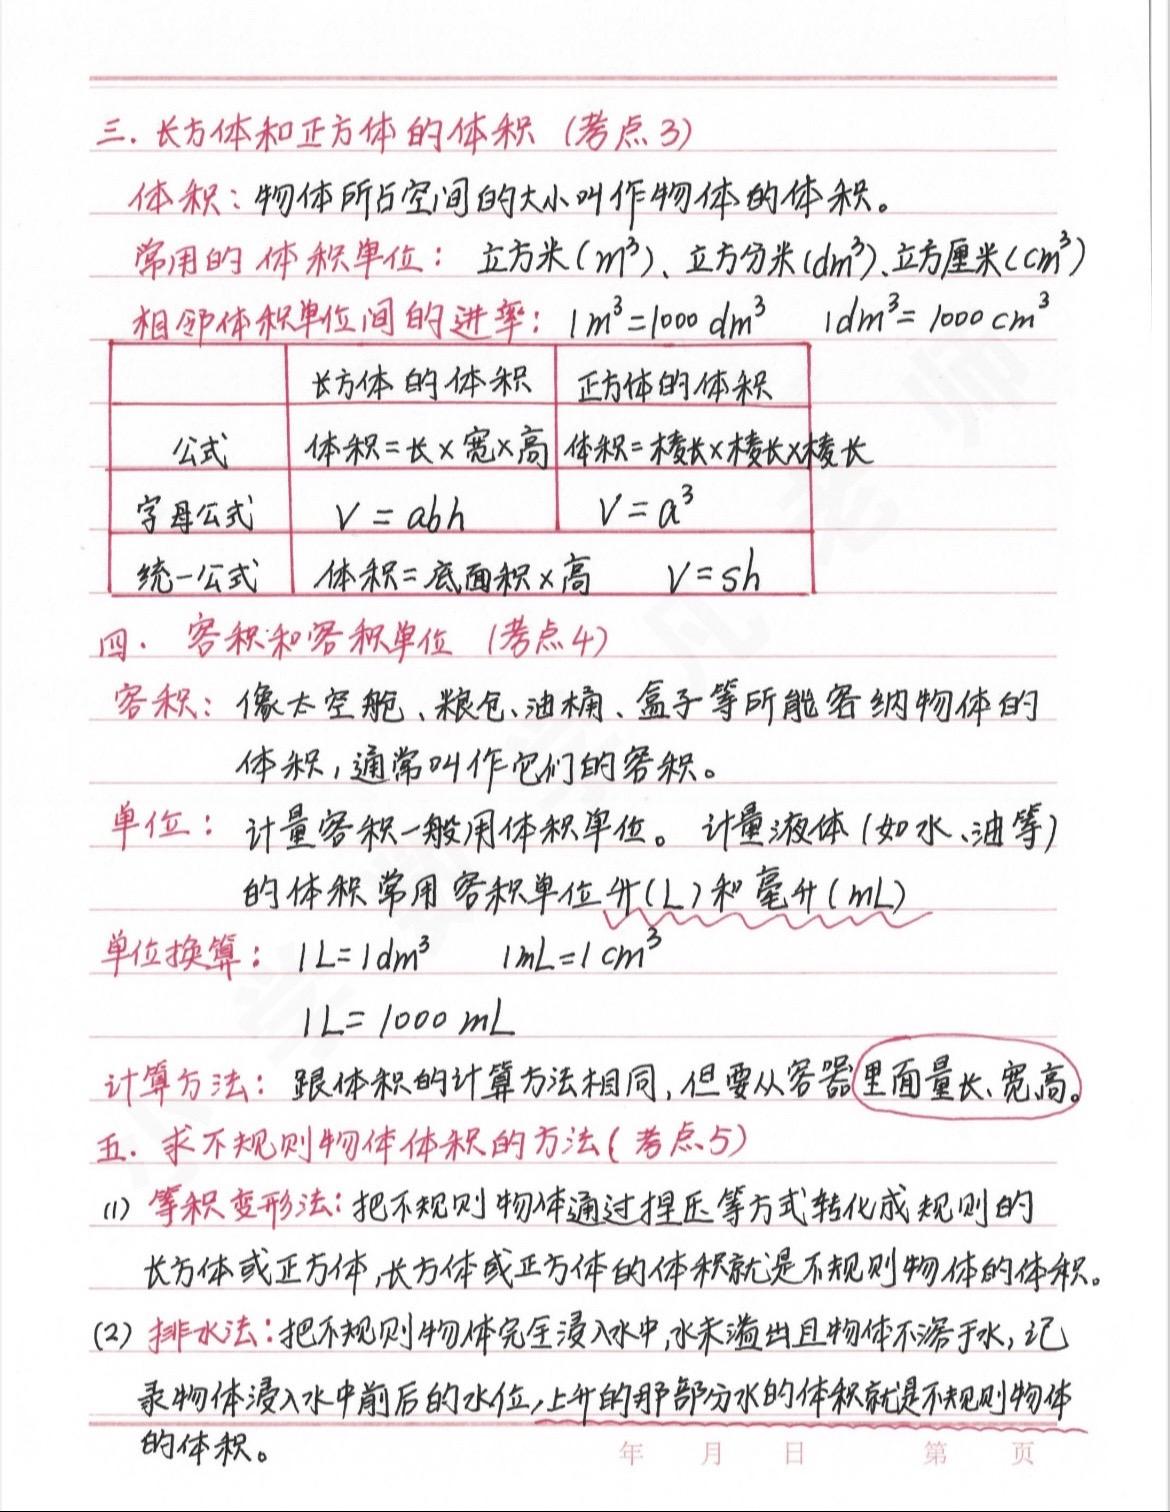 三. 长方体和正方体的体积 (考点3)
体积: 物体所占空间的大小叫作物体的体积。
常用的体积单位: 立方米(m³)、立方分米(dm³)、立方厘米(cm³)
相邻体积单位间的进率: 1m³=1000 dm³ 1dm³=1000 cm³
长方体的体积 正方体的体积
公式 体积=长×宽×高 体积=棱长×棱长×棱长
字母公式 V=abh V=a³
统一公式 体积=底面积×高 V=sh
四. 容积和容积单位 (考点4)
容积: 像太空舱、粮仓、油桶、盒子等所能容纳物体的
体积,通常叫作它们的容积。
单位: 计量容积一般用体积单位。计量液体(如水、油等)
的体积常用容积单位升(L)和毫升(mL)
单位换算: 1L=1dm³ 1mL=1cm³
1L=1000mL
计算方法: 跟体积的计算方法相同,但要从容器里面量长、宽、高。
五. 求不规则物体体积的方法(考点5)
(1) 等积变形法:把不规则物体通过捏压等方式转化成规则的
长方体或正方体,长方体或正方体的体积就是不规则物体的体积。
(2) 排水法:把不规则物体完全浸入水中,水未溢出且物体不溶于水,记
录物体浸入水中前后的水位,上升的那部分水的体积就是不规则物体
的体积。
年 月 日 第 页